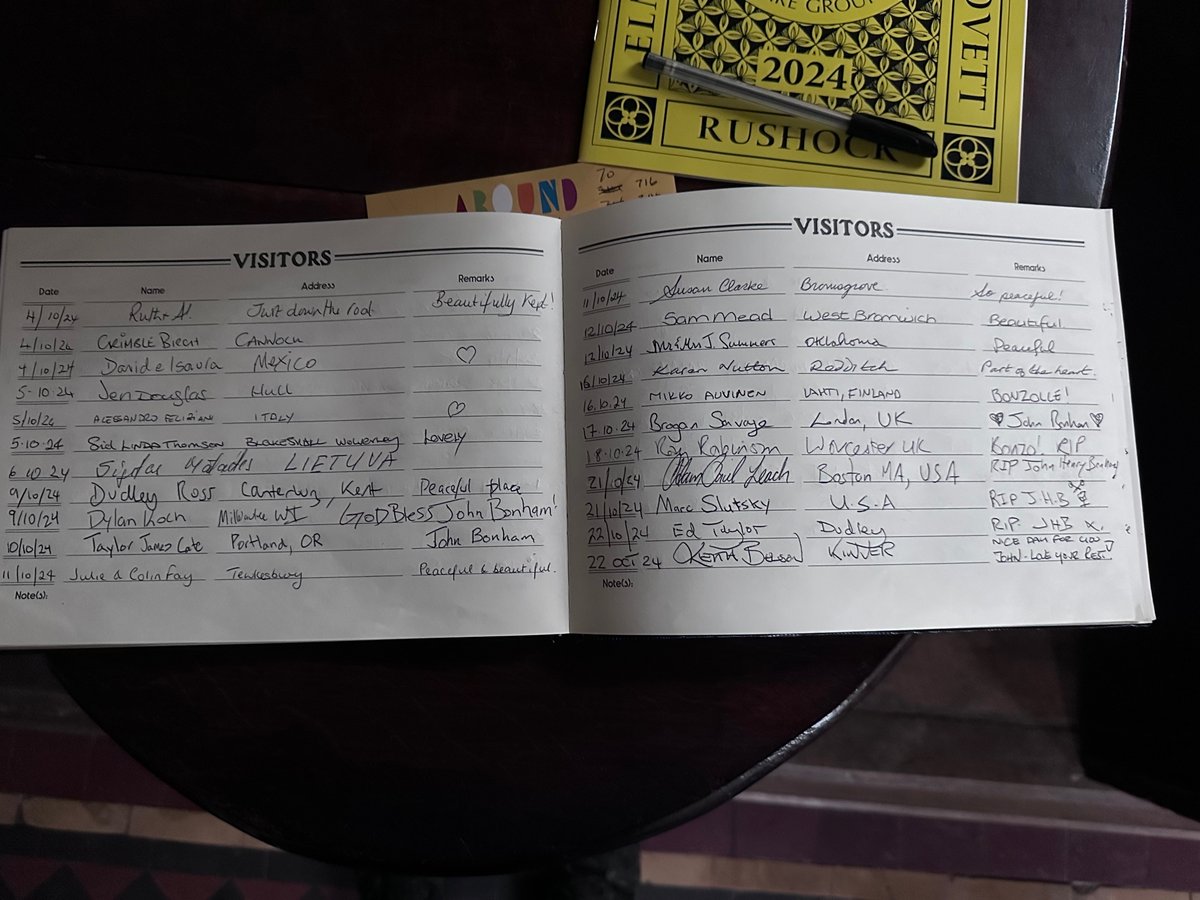 KE GROUP
ELM
OVETT
2024
RUSHOCK
AROUND
70
716
VISITORS
Date Name Address Remarks
4/10/24 Ruth A! Just down the road Beautifully Kept!
4/10/24 CRIMBLE BRECHT CANNOCK
4/10/24 David e Isaura Mexico ♡
5-10-24 Jen Douglas Hull
5/10/24 ALESSANDRO FELIZIANI ITALY ♡
5-10-24 Sid LINDA Thomson BLAKESHALL Wolverley Lovely
6 10 24 LIETUVA
9/10/24 Dudley Ross Canterbury, Kent Peaceful place!
9/10/24 Dylan Koch Milwaukee WI GOD Bless John Bonham!
10/10/24 Taylor James Cate Portland, OR John Bonham
11/10/24 Julie & Colin Fay Tewkesbury Peaceful & beautiful.
Note(s):
VISITORS
Date Name Address Remarks
11/10/24 Susan Clarke Bromsgrove So peaceful!
12/10/24 Sam Mead West Bromwich Beautiful
12/10/24 Mr & Mrs J. Summers Oklahoma Peaceful
16/10/24 Karen Nutton Redditch Part of the heart.
16.10.24 MIKKO AUVINEN LAHTI, FINLAND BONZOLLE!
17.10.24 Brogan Savage London, UK ♥ John Bonham ♥
18.10.24 Roy Robinson Worcester UK Bonzo! RIP
21/10/24 Leach Boston MA, USA RIP John Henry Bonham
21/10/24 Marc Slutsky U.S.A RIP J.H.B
22/10/24 Ed Taylor Dudley R.I.P JHB X.
22 OCT 24 KEITH KINVER NICE DAY FOR YOU
JOHN-
Note(s):